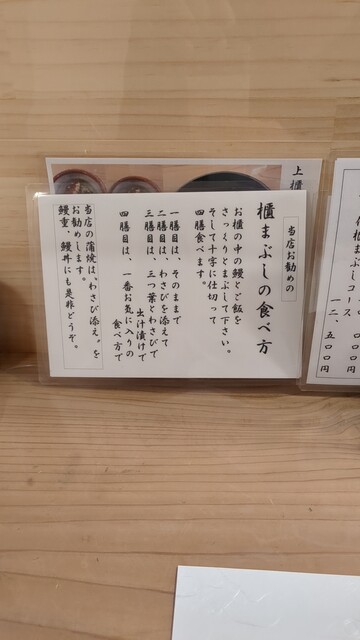 当店お勧めの
櫃まぶしの食べ方
お櫃の中の鰻とご飯を
さっくりとまぶして下さい。
そして十字に仕切って
四膳食べます。
一膳目は、そのままで
二膳目は、わさびを添えて
三膳目は、三つ葉とわさびで
出汁漬けで
四膳目は、一番お気に入りの
食べ方で
当店の蒲焼は、“わさび添え”を
お勧めします。
鰻重、鰻丼にも是非どうぞ。
上櫃
まぶしコース
000円
一二、五00円